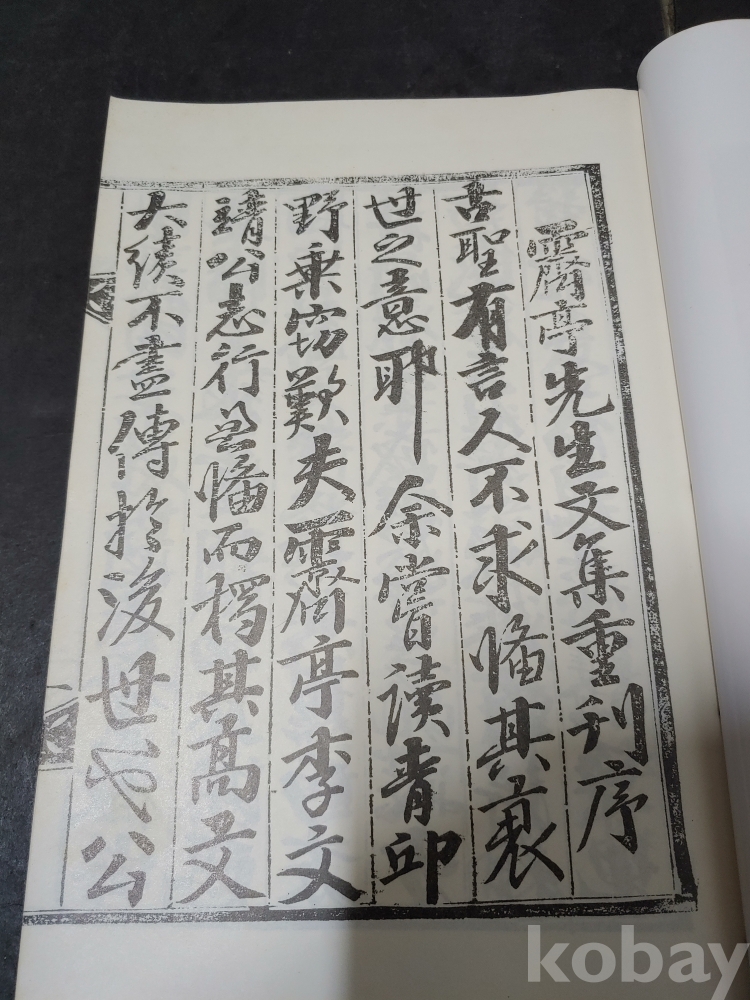 霽亭先生文集重刊序
古聖有言人不求備其衰
世之意耶余嘗讀青邱
野乘窃歎夫霽亭李文
靖公志行備而獨其高文
大不盡傳於後世也公
kobay